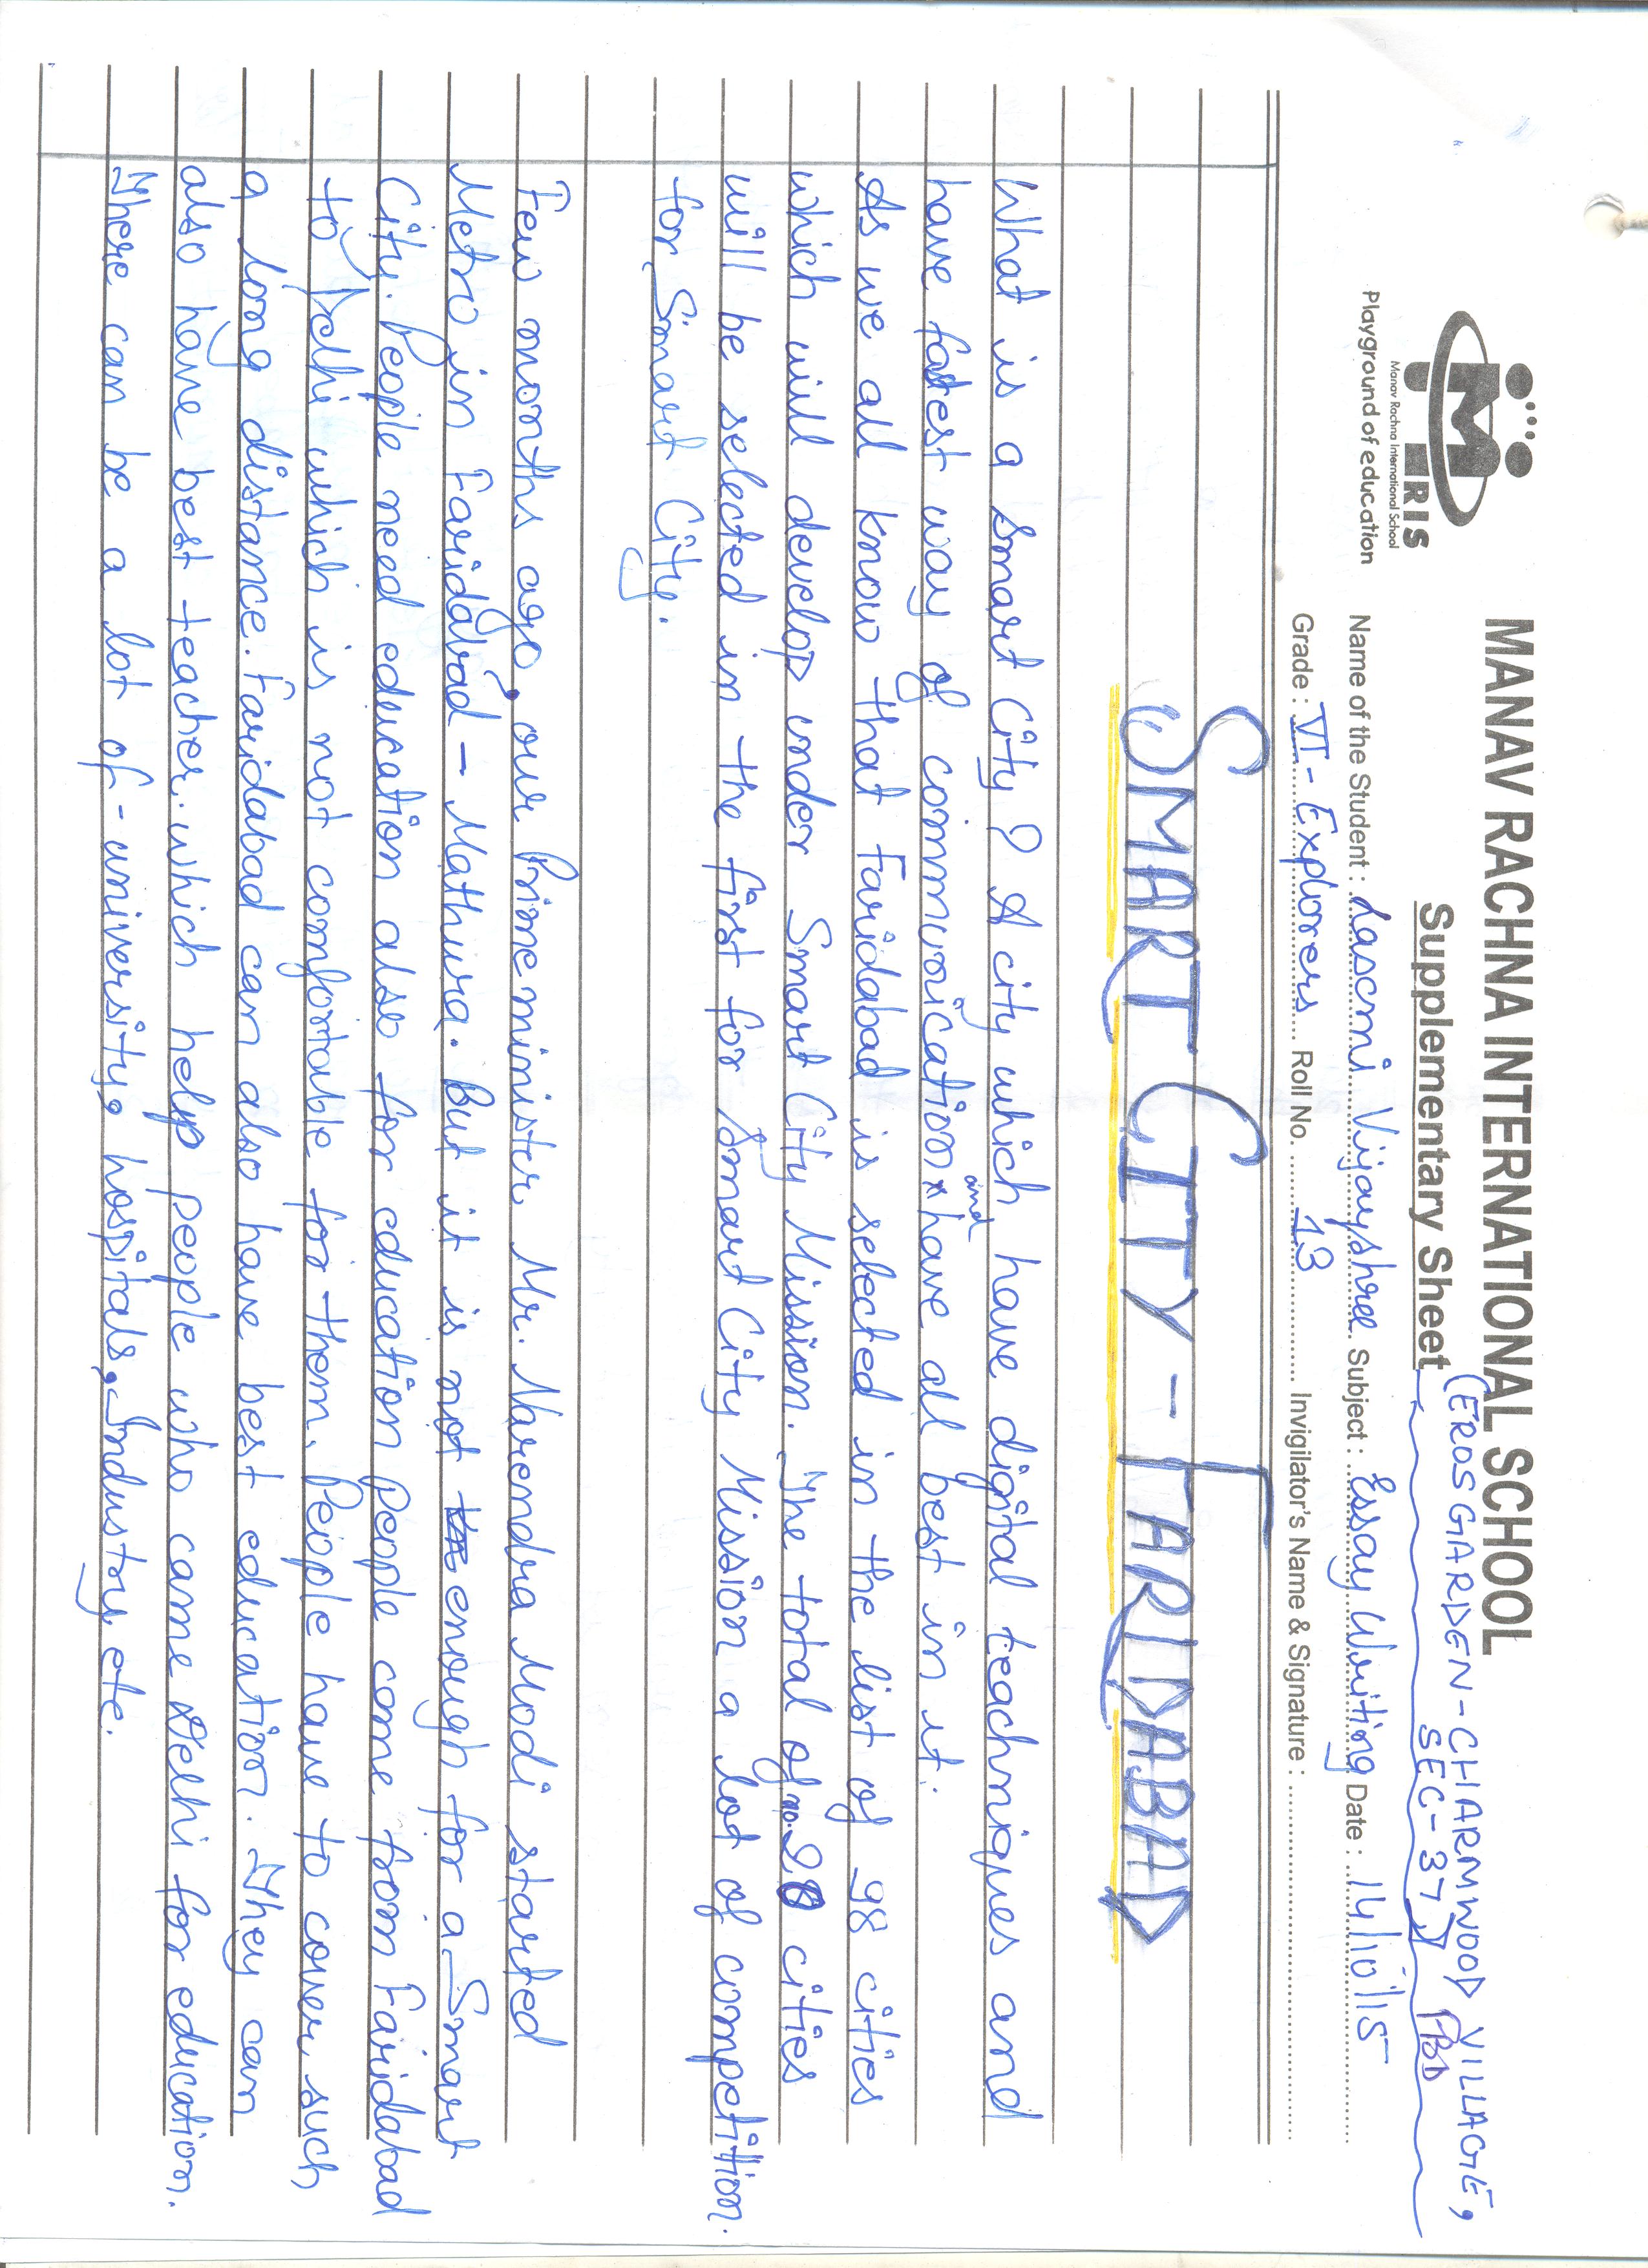 MANAV RACHNA INTERNATIONAL SCHOOL
(EROS GARDEN-CHARMWOOD VILLAGE,
Supplementary Sheet
SEC-37) FBD
MRIS
Manav Rachna International School
Playground of education
Name of the Student : Lascmi Vijayshree Subject : Essay Writing Date : 14/10/15
Grade : VI - Explorers Roll No. 13 Invigilator's Name & Signature :
SMART CITY - FARIDABAD
What is a Smart City? A city which have digital teachniques and
have fastest way of communication and have all best in it.
As we all know that Faridabad is selected in the list of 98 cities
which will develop under Smart City Mission. The total of no. 20 cities
will be selected in the first for Smart City Mission a lot of competition
for Smart City.
Few months ago, our Prime minister, Mr. Narendra Modi started
Metro in Faridabad - Mathura. But it is not enough for a Smart
City. People need education also for education people come from Faridabad
to Delhi which is not comfortable for them. People have to cover such
a long distance. Faridabad can also have best education. They can
also have best teacher. which help people who came Delhi for education.
There can be a lot of - university, hospitals, Industry, etc.